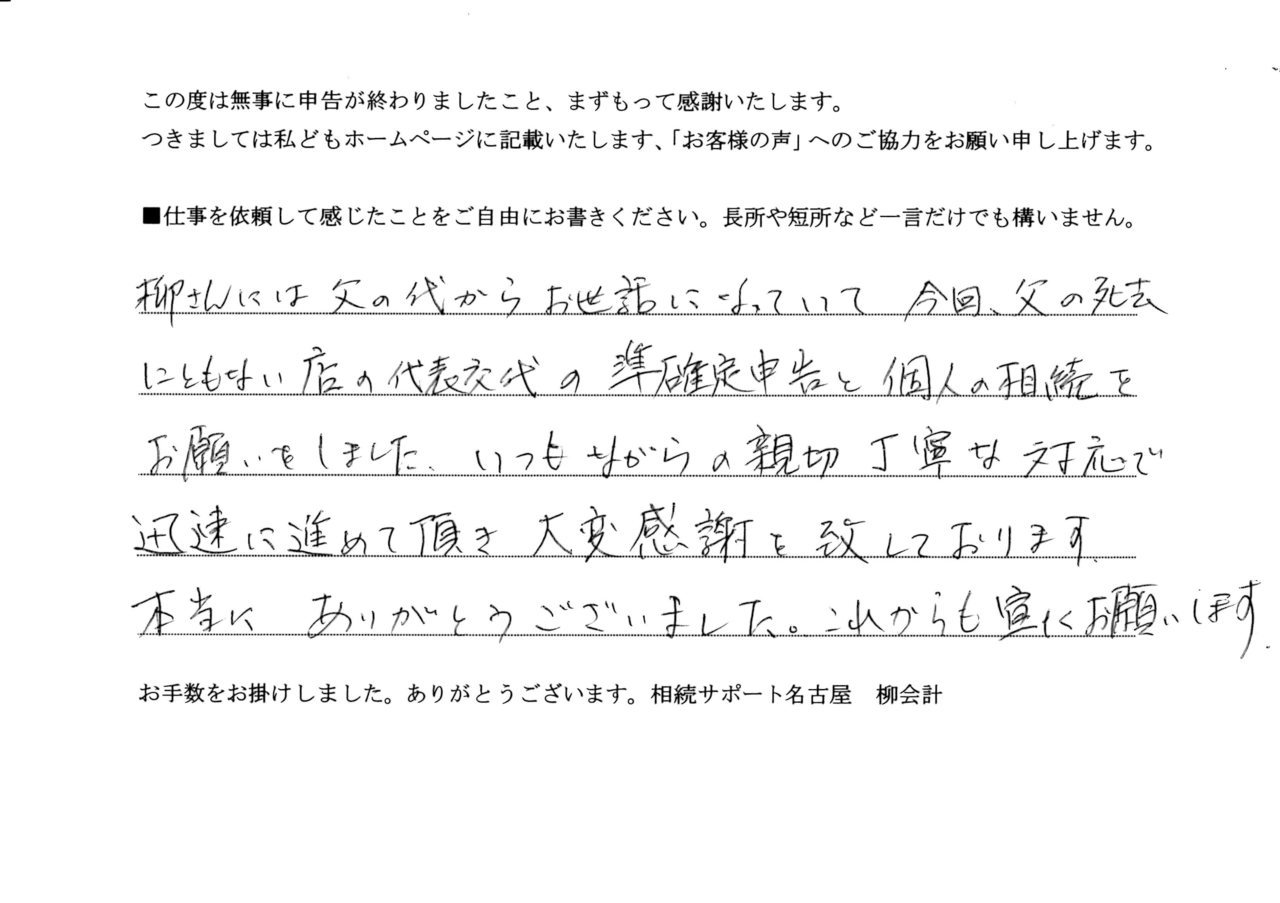 この度は無事に申告が終わりましたこと、まずもって感謝いたします。
つきましては私どもホームページに記載いたします、「お客様の声」へのご協力をお願い申し上げます。
■仕事を依頼して感じたことをご自由にお書きください。長所や短所など一言だけでも構いません。
柳さんには 父の代から お世話になっていて 今回、父の死去
にともない 店の代表交代の 準確定申告と 個人の相続を
お願いをしました、いつもながらの親切丁寧な対応で
迅速に進めて頂き 大変感謝を致しております。
本当に ありがとうございました。これからも宜しくお願いします。
お手数をお掛けしました。ありがとうございます。相続サポート名古屋 柳会計